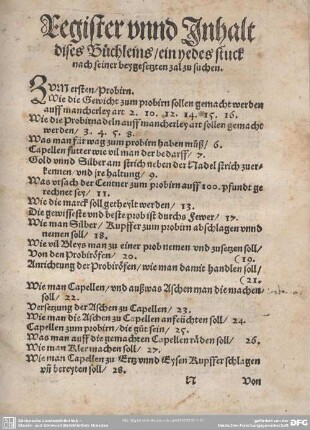 Register vnnd Inhalt
dises Büchleins / ein yedes stuck
nach seiner beygesetzten zal zu suchen.
ZVM ersten / Probirn.
Wie die Gewicht zum probirn sollen gemacht werden
auff mancherley art 2. 10. 12. 14. 15. 16.
Wie die Probitnadeln auff mancherley art sollen gemacht
werden / 3. 4. 5. 8.
Was man für wag zum probirn haben müß / 6.
Capellen futter wie vil man der bedarff / 7.
Gold vnnd Silber am strich neben der Nadel strich zuer-
kennen / vnd jre haltung / 9.
Was vrsach der Centner zum probirn auff 100. pfundt ge
rechnet sey / 11.
Wie die marck soll getheylt werden / 13.
Die gewisseste vnd beste prob ist durchs Fewer / 17.
Wie man Silber / Kupffer zum probirn abschlagen vnnd
nemen soll / 18.
Wie vil Bleys man zu einer prob nemen vnd zusetzen soll /
Von den Probiröfen / 20. (19.
Anrichtung der Probiröfen / wie man damit handlen soll /
(21.
Wie man Capellen / vnd außwas Aschen man die machen
soll / 22.
Versetzung der Aschen zu Capellen / 23.
Wie man die Aschen zu Capellen anfeüchten soll / 24.
Capellen zum probirn / die güt sein / 25.
Was man auff die gemachten Capellen räden soll / 26.
Wie man Kler machen soll / 27.
Wie man Capellen zu Ertz vnnd Eysen Kupffer schlagen
vñ bereyten soll / 28.
A Von